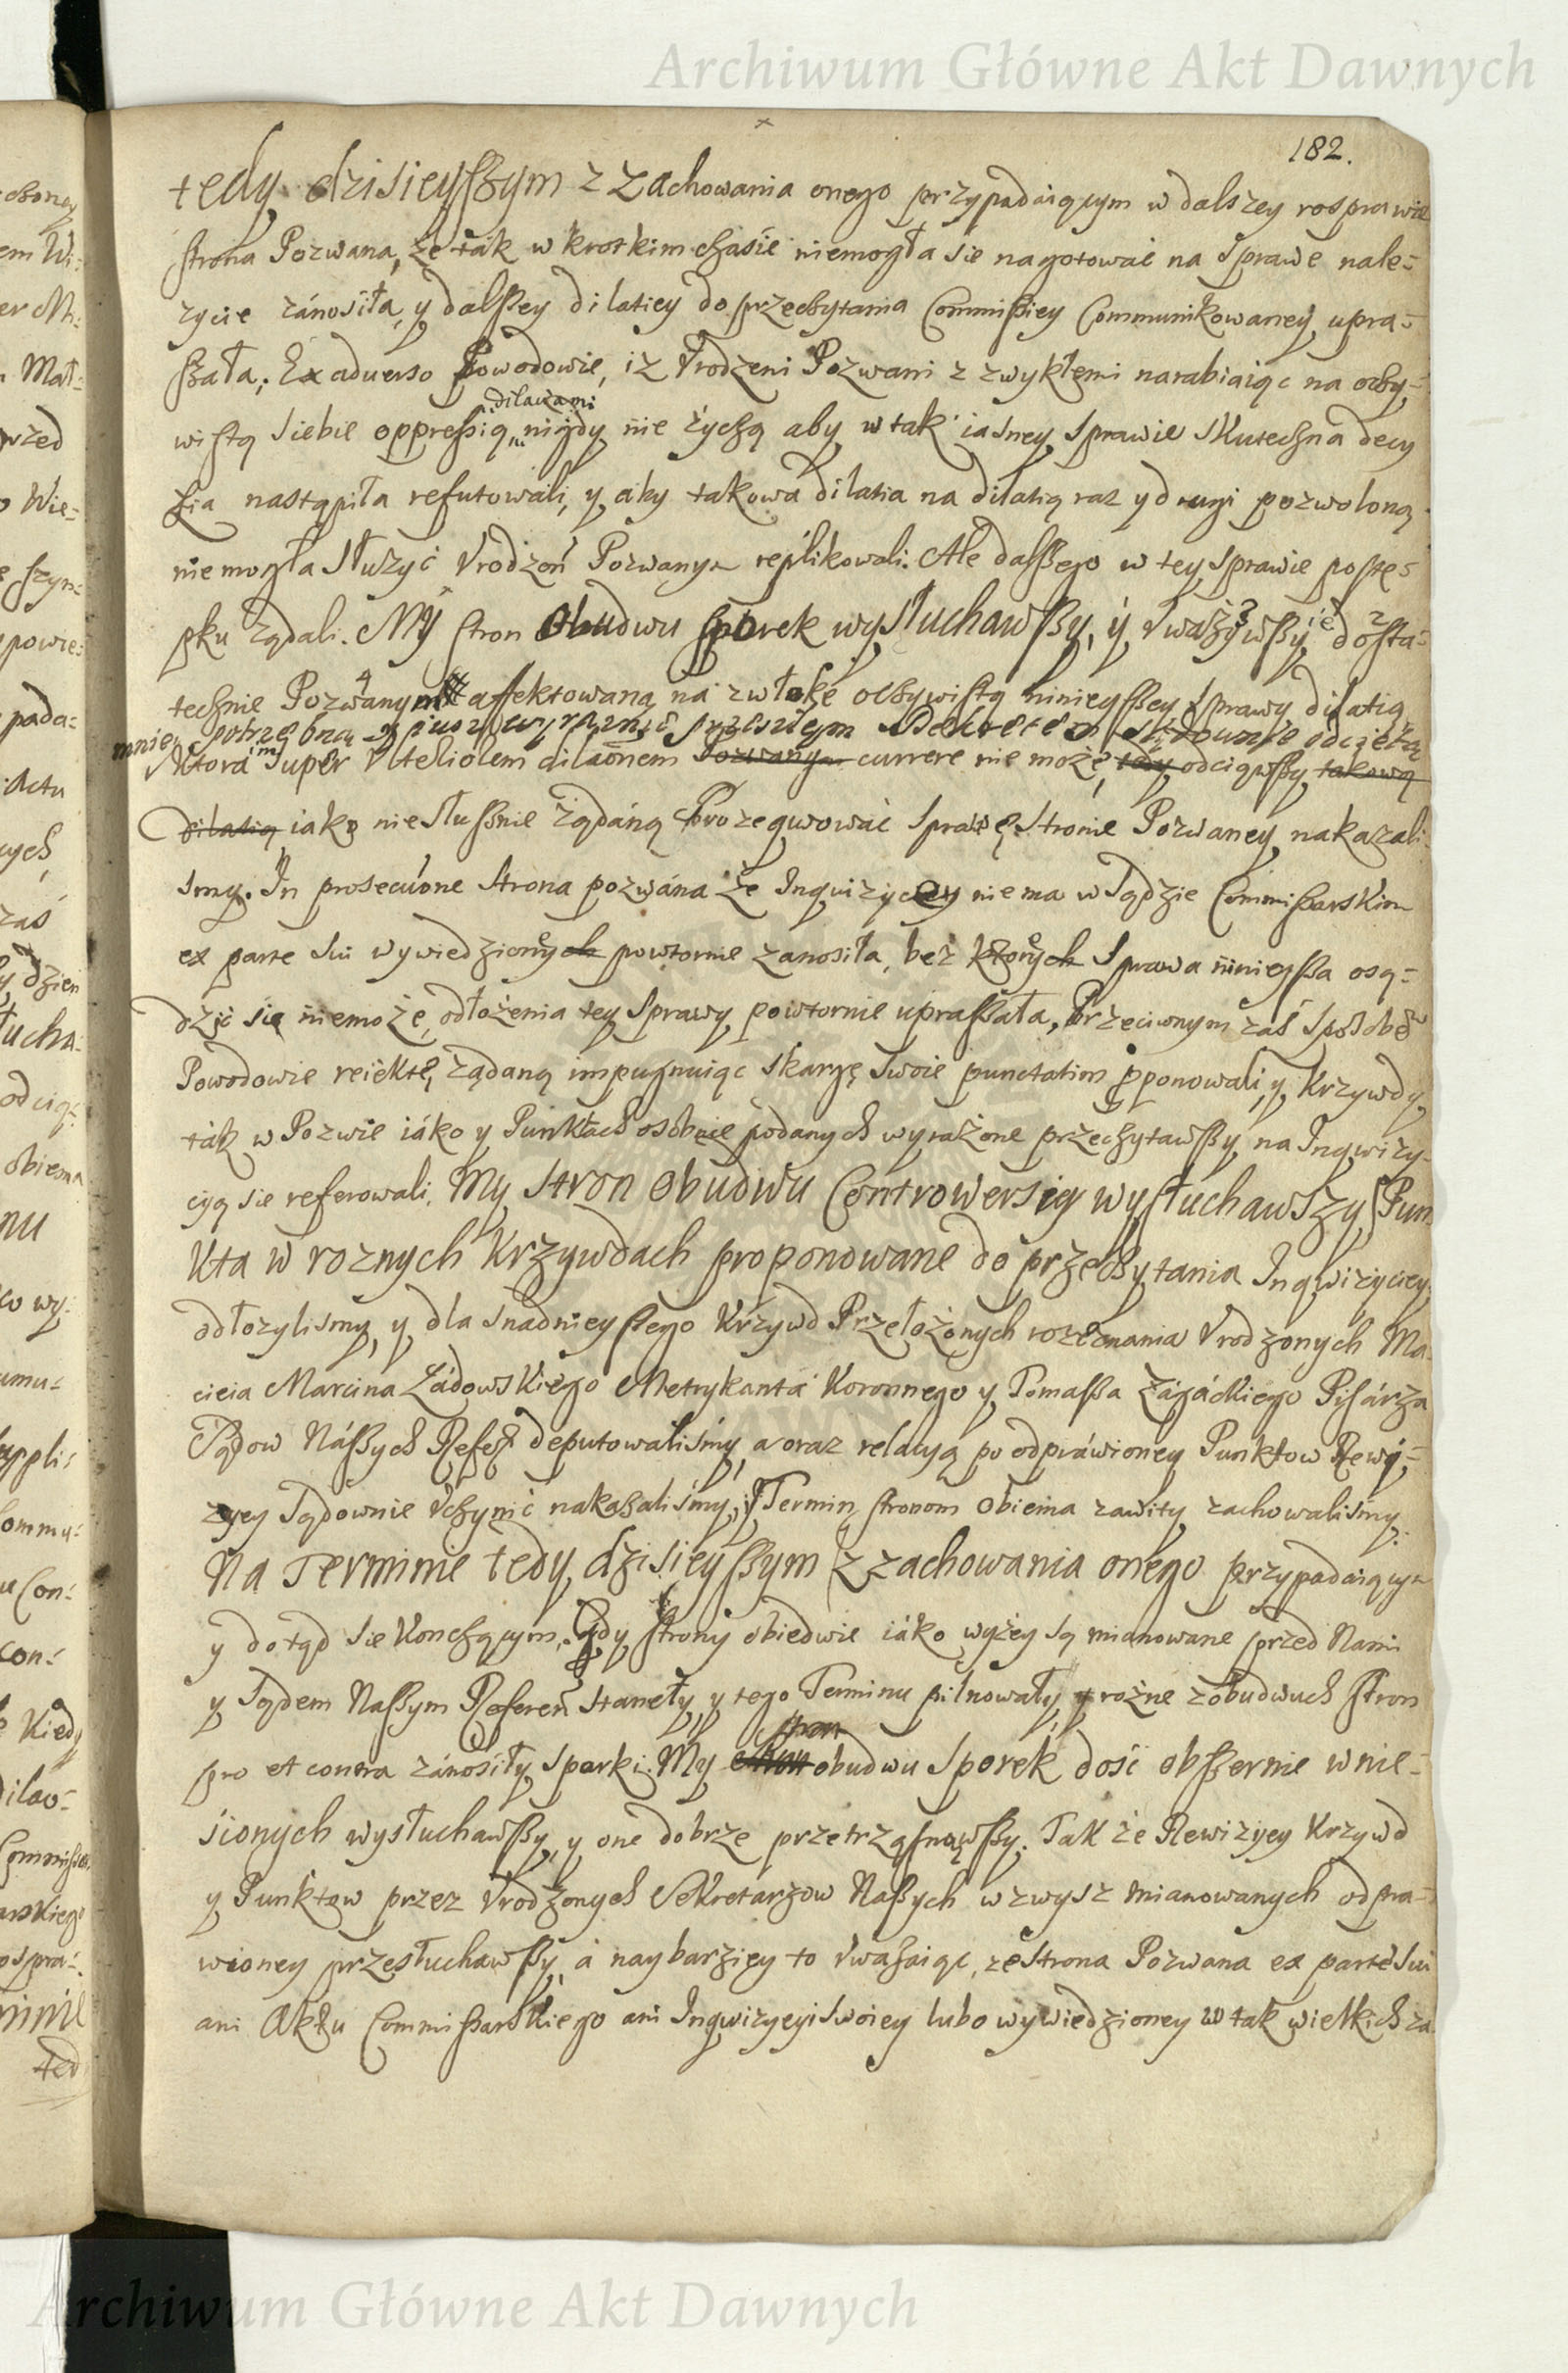 Archiwum Główne Akt Dawnych
182.
tedy dzisieyßzym z zachowania onego przypadaiącym w dalszey rosprawie
strona Pozwana, że ták w krotkim czasie niemogła sie nagotować na Sprawe nale=
zycie zánosiła, y dalßey dilatiey do przeczytania Commißiey Communikowaney upra=
ßała; Ex aduerso Powodowie, iz Vrodzeni Pozwani z zwykłemi narabiaiąc na oczy=
dilaciami
wistą siebie oppreßią nigdy nie życzą aby w tak iasney Sprawie skuteczna decy
zia nastąpiła refutowali, y aby takowa dilatia na dilatią raz y drugi pozwoloną
niemogła służyć Vrodzoń Pozwanym replikowali. Ale dalßego w tey Sprawie postę=
pku żądali. My stron obudwu sporek wysłuchawßy, y Vważywßy dosta=
tecznie Pozwanym affektowaną na zwłokę oczywistą ninieyßey Sprawy dilatią
mnie potrzebną y iusz wyraznie przeszłym Dekretem Sądownie odciętą
Ktora super Vlteriorem dilaōnem Pozwanym currere nie może, tedy odciąwßy takową
dilatią iako nie słußnie żądáną Prozequwować Sprawę Stronie Pozwaney nakazali
smy. In prosecuōne Strona pozwána że Inquizycyy niema w Sądzie Commißarskim
ex parte sui wywiedzionych powtornie zanosiła, bez ktorych Sprawa ninieyßa osą=
dzić się niemoże, odłożenia tey Sprawy powtornie upraßała, Przeciwnym zaś sposobē
Powodowie reiektę żądaną impugnuiąc skargę swoie punctatim pponowali, y Krzywdy
ták w Pozwie iáko y Punktach osobnie podanych wyrażone przeczytawßy na Inqwizy=
cyą sie referowali. My stron obudwu Controwersiy wysłuchawszy, Pun
kta w roznych Krzywdach proponowane do przeczytania Inqwizyciey
odłozylismy, y dla snadnieyßego Krzywd Przełożonych rozeznania Vrodzonych Ma
cieia Marcina Ładowskiego Metrykanta Koronnego y Tomaßa Zágáckiego Pisárza
Sądow Náßych Refeř deputowaliśmy, a oraz relacyą po odpráwioney Punktow Rewi=
zyey Sądownie Vczynić nakazaliśmy, y Termin stronom obiema zawity zachowaliśmy.
Na Terminie tedy dzisieyßym z zachowania onego przypadaiącym
y dotąd sie konczącym. Gdy strony obiedwie iáko wyżey są mianowane przed Nami
y Sądem Naßym Refereń stanęły, y tego Terminu pilnowały, y rożne z obudwuch stron
stron
pro et contra zánosiły Sporki. My obudwu Sporek dość obßernie wnie=
sionych wysłuchawßy, y one dobrze przetrząsnąwßy. Tak że Rewizyey Krzywd
y Punktow przez Vrodzonych Sekretarzow Naßych wzwysz mianowanych odpra=
wioney przesłuchawßy, á naybarziey to Vważaiąc, że Strona Pozwana ex parte sui
ani Aktu Commißarskiego ani Inqwizycyi swoiey lubo wywiedzioney w tak wielkich za
Archiwum Główne Akt Dawnych